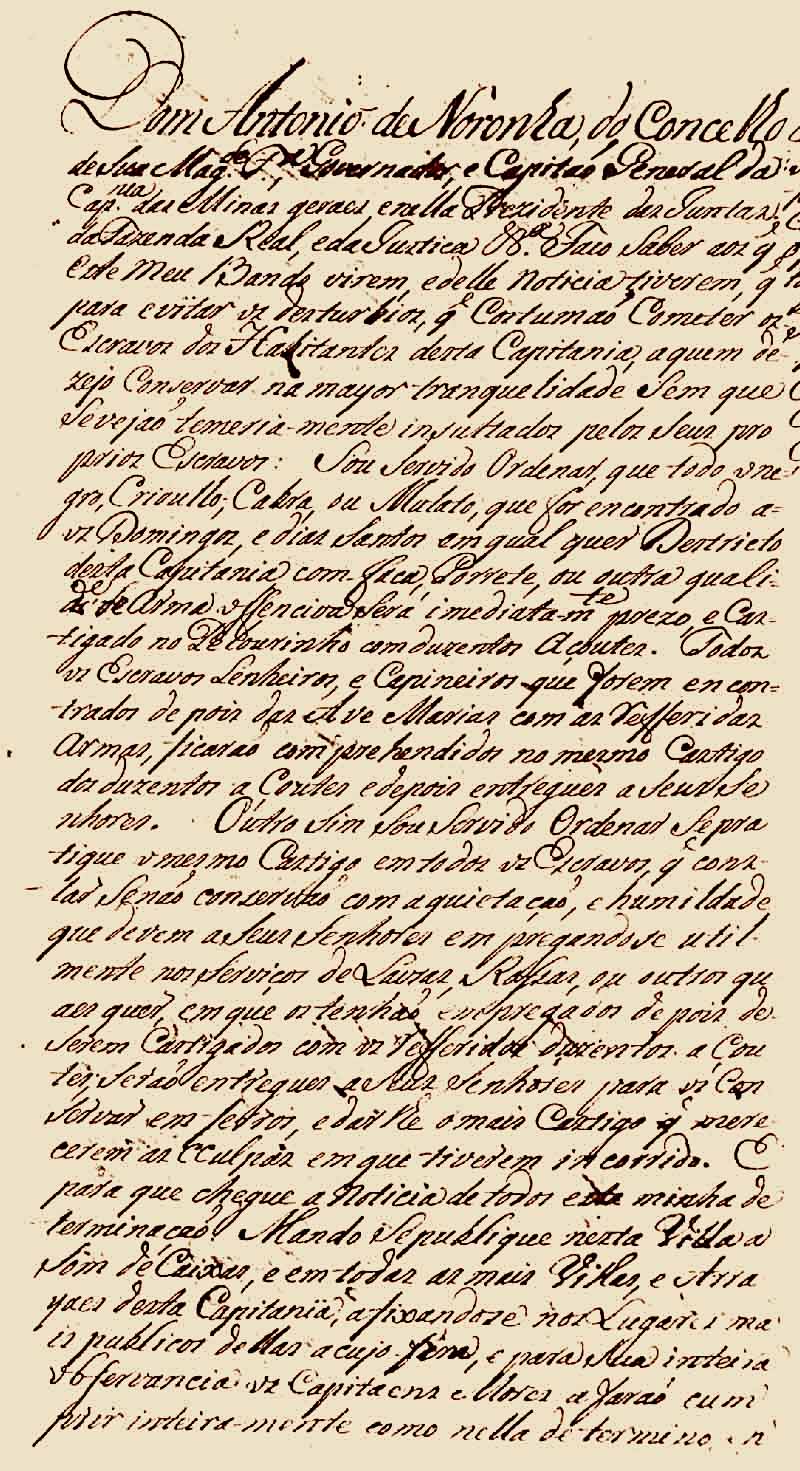 Dom Antonio de Noronha, do Concelho
de Sua Mag.de F., Governador, e Capitaõ General da
Cap.nia das Minas geraes, e nella Prezidente das Juntas
da Fazenda Real, e da Justiça &.ª Faço Saber aos q̃
este meu Bando virem, e delle Noticia tiverem, q̃
para evitar os desturbios, q̃ Costumaõ Cometer os
Escravos dos Habitantes desta Capitania, a quem de-
zejo Conservar na mayor tranquelidade Sem que
Sevejaõ temeria-mente insultados pelos Seus pro
prios Escravos: Sou Servido Ordenar, que todo o ne-
gro, Crioullo, Cabra, ou Mulato, que for encontrado a-
os Domingos, e dias Santos em qual quer Destricto
desta Capitania com faca, Porrete, ou outra quali-
de de Arma offenciva Será imediatam.te prezo, e Cas-
tigado no Pelourinho com duzentos Açoutes. Todos
os Escravos Lenheiros, e Capineiros que forem encon-
trados de pois das Ave Marias com as refferidas
Armas, ficaraõ comprehendidos no mesmo Castigo
dos duzentos a Coutes e depois entregues a Seus Se
nhores. Outro Sim Sou Servido Ordenar Se pra
tique o mesmo Castigo em todos os Escravos, q̃ cons-
tar Senaõ conservaõ com a quietaçaõ, e humildade
que devem a Seus Senhores em pregandose util-
mente nos Serviços de Lavras, Rossas, ou outros qu
aes quer, em que os tenhaõ empregados de pois de
Serem Castigados com os refferidos duzentos a Cou
tes, seraõ entregues a Seus Senhores para os Con
servar em ferros, e dar lhe o mais Castigo q̃ mere
cerem as Culpas em que tiverem incorrido. E
para que chegue a Noticia de todos esta minha de
terminaçaõ. Mando Se publique nesta Villa a
Som de Caixas, e em todas as mais Villas, e Arra
yaes desta Capitania, afixandose nos Lugares ma
is publicos dellas a cujo fim, e para Sua inteira
observancia os Capitaens Mores a faraõ cum
prir inteira-mente como nella de termino